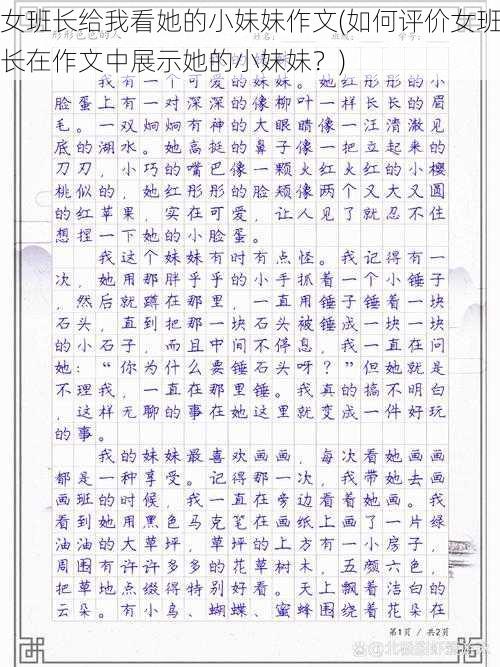 女班长给我看她的小妹妹作文(如何评价女班
长在作文中展示她的小妹妹？)
我有一个可爱的妹妹。她红彤彤的小
脸蛋上有一对深深的像柳叶一样长长的眉
毛。一双炯炯有神的大眼睛像一汪清澈见
底的湖水。她高挺的鼻子像一把立起来的
刀刃，小巧的嘴巴像一颗火红火红的小樱
桃似的，她红彤彤的脸颊像两个又大又圆
的红苹果，实在可爱，让人见了就忍不住
想捏一下她的小脸蛋。
我这个妹妹有时有点怪。我记得有一
次，她用那胖乎乎的小手抓着一个小锤子
，然后就蹲在那里，一直用锤子锤着一块
石头，直到把那一块石头被锤成一块一块
的小石子，而且中间不停息，我一直在问
她：“你为什么要锤石头呀？”但她就是
不理我，一直在那里锤。我真的搞不明白
，这样无聊的事在她这里就变成一件好玩
的事。
我的妹妹最喜欢画画，每次看她画画
都是一种享受。记得那一次，我带她去画
画班的时候，我一直在旁边看着她画。我
看到她用黑色马克笔在画纸上画了一片绿
油油的大草坪，草坪的上方有一小房子，
周围有许许多多的花草树木，五颜六色，
把草地点缀得特别好看。天上飘着洁白的
云朵。有小鸟、蝴蝶、蜜蜂围绕着花朵在
第1页 / 共2页